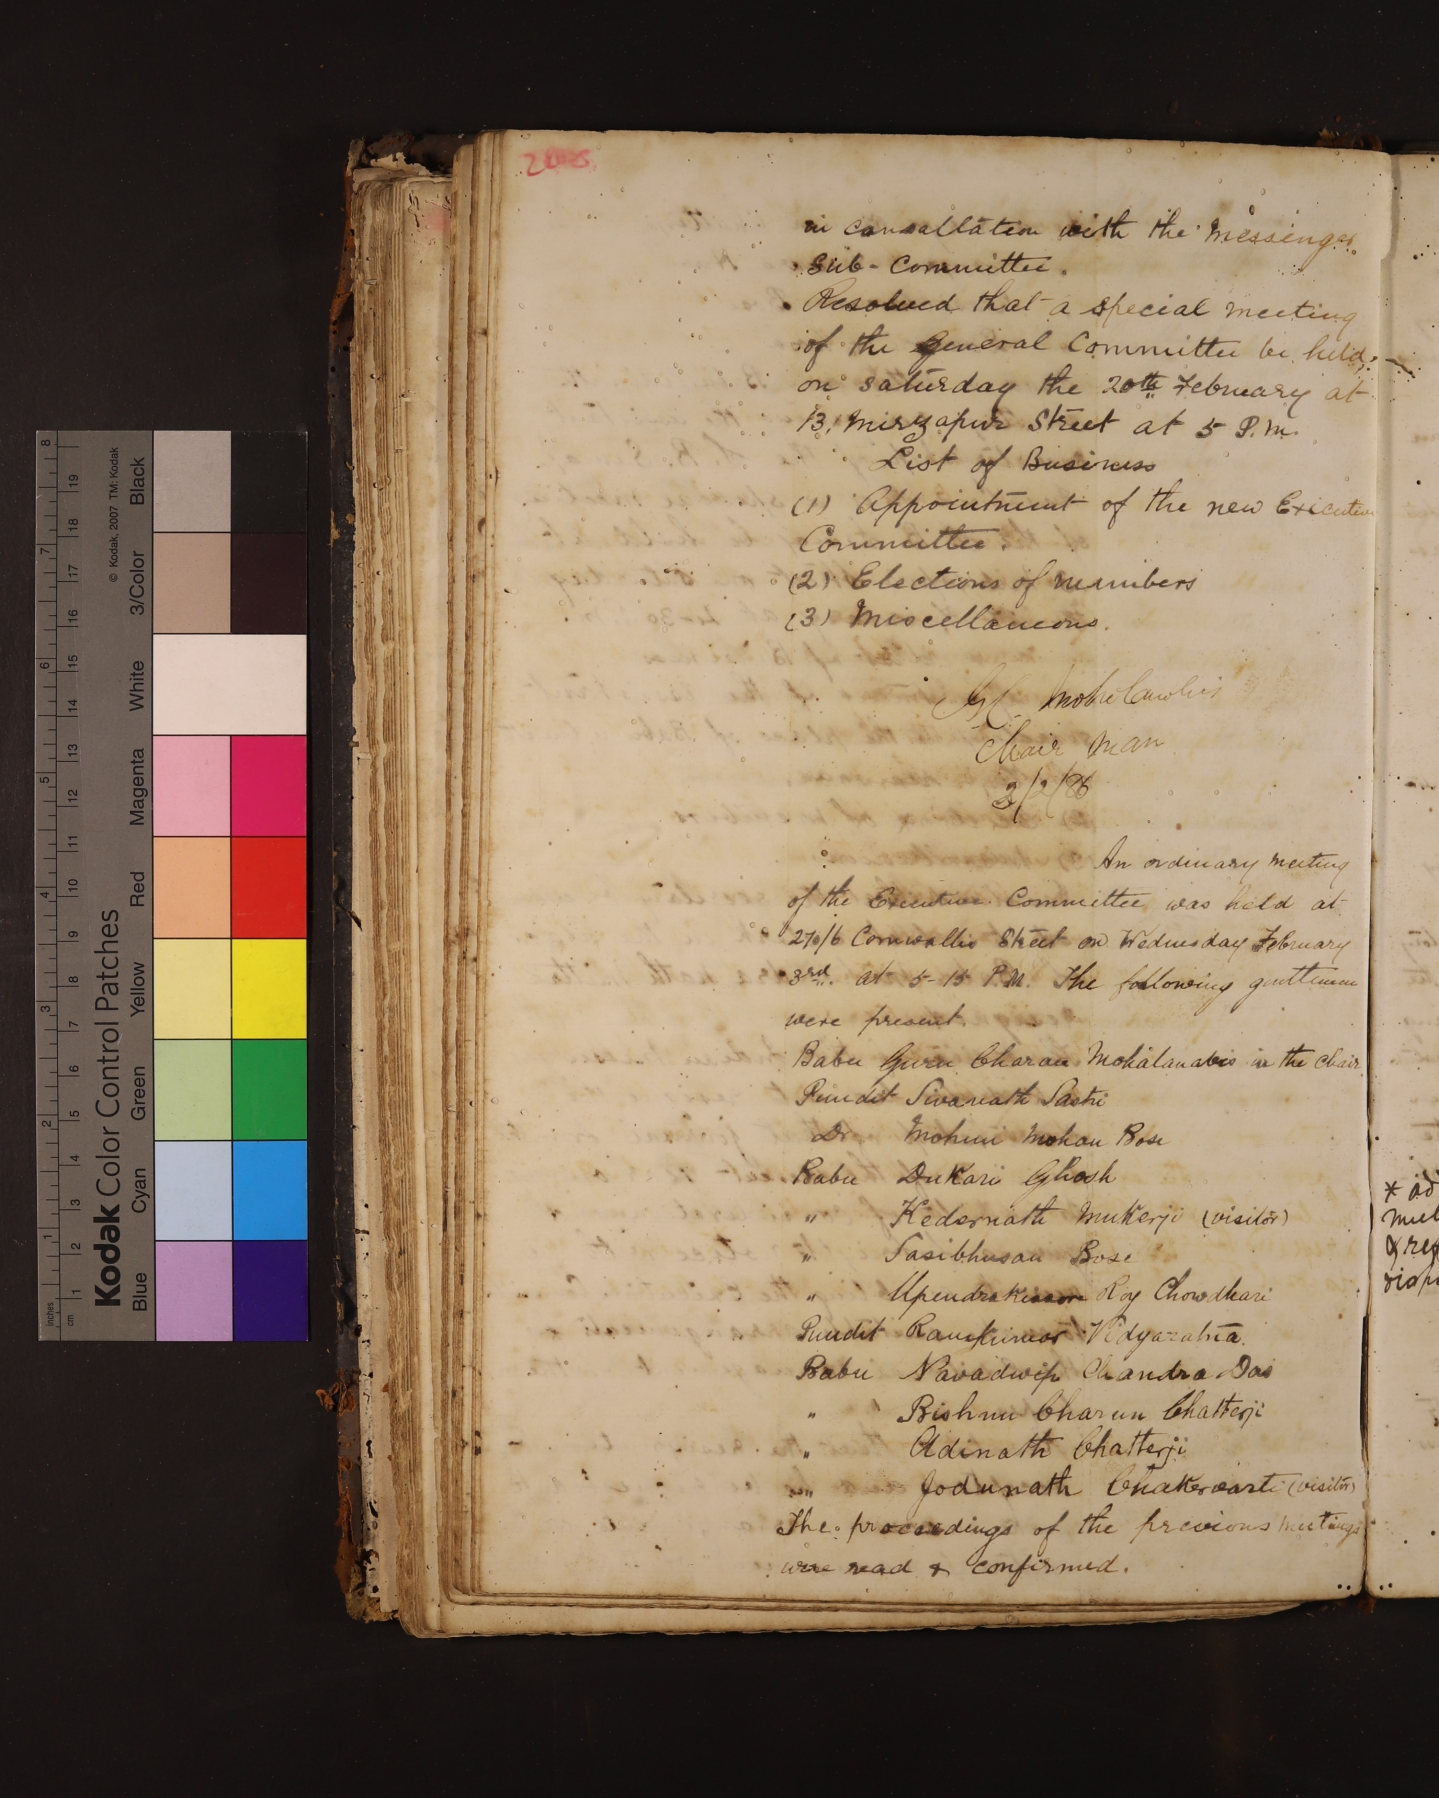 in consaltation with the Messenger
Sub-Committee.
Resolved that a special meeting
of the General Committee be held
on saturday the 20th February at
13, Mirzapur Street at 5 P.M.
List of Business
(1) Appointment of the new Executive
Committee.
(2) Elections of members
(3) Miscellaneous.
Chair man
3/2/86
An ordinary meeting
of the Executive Committee was held at
Cornwallis Street on Wednesday February
3rd. at 5-15 P.M. The following gentlemen
were present.
Babu Guru Charan Mohalanabis in the chair
Pundit Sivanath Sastri
Dr Mohini Mohan Bose
Babu Dukari Ghosh
" Kedernath Mukerji (visitor)
" Sasibhusan Bose
" Upendrakissore Roy Chowdhari
Pundit Ramkumar Vidyaratna
Babu Navadwip Chandra Das
" Bishnu Charun Chatterji
" Adinath Chatterji
" Jodunath Chakervarti (visitor)
The proceedings of the previous meetings
were read & confirmed.
Kodak Color Control Patches
© Kodak, 2007 TM: Kodak
Blue Cyan Green Yellow Red Magenta White 3/Color Black
inches 1 2 3 4 5 6 7 8
cm 1 2 3 4 5 6 7 8 9 10 11 12 13 14 15 16 17 18 19